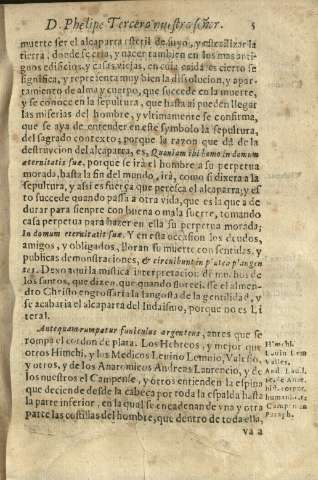 D. Phelipe Tercero nuestro señor. 5
muerte ser el alcaparra esteril de suyo, y esterilizar la
tierra, donde se cria, y nacer tambien en los mas anti-
guos edificios, y casas viejas, en cuya caida es cierto se
significa, y representa muy bien la dissolucion, y apar-
tamiento de alma y cuerpo, que sucede en la muerte,
y se conoce en la sepultura, que hasta ai pueden llegar
las miserias del hombre, y vltimamente se confirma,
que se aya de entender en este symbolo la sepultura,
del sagrado contexto; porque la razon que dà de la
destruycion del alcaparra, es, Quoniam ibi homo in domum
æternitatis suæ. porque se irà el hombre a su perpetua
morada, hasta la fin del mundo, irà, como si dixera a la
sepultura, y assi es fuerça que peresca el alcaparra; y es
to sucede quando passa a otra vida, que es la que a de
durar para siempre con buena o mala suerte, tomando
casa perpetua para hazer en ella su perpetua morada;
In domum eternitatis suæ. Y en esta occasion los deudos,
amigos, y obligados, lloran su muerte con sentidas, y
publicas demonstraciones, & circuibunt in platea plangen
tes. Dexo aqui la mistica interpretacion de muchos de
los santos, que dizen que quando floreciesse el almen-
dro Christo engrossaria la langosta de la gentilidad, y
se acabaria el alcaparra del Iudaismo, porque no es Li
teral.
Antequam rumpatur funiculus argenteus, antes que se
rompa el cordon de plata. Los Hebreos, y mejor que
otros Himchi, y los Medicos Leuino Lemnio, Valesio,
y otros, y de los Anatomicos Andreas Laurencio, y de
los nuestros el Campense, y otros entienden la espina
que deciende desde la cabeça por toda la espalda hasta
la parte inferior, en la qual se encadenan de vna y otra
parte las costillas del hombre, que dentro de toda ella,
Himchi.
Leuin Lem
Valles.
And. Laur.
humani
Campen. in
Paraph.
va a